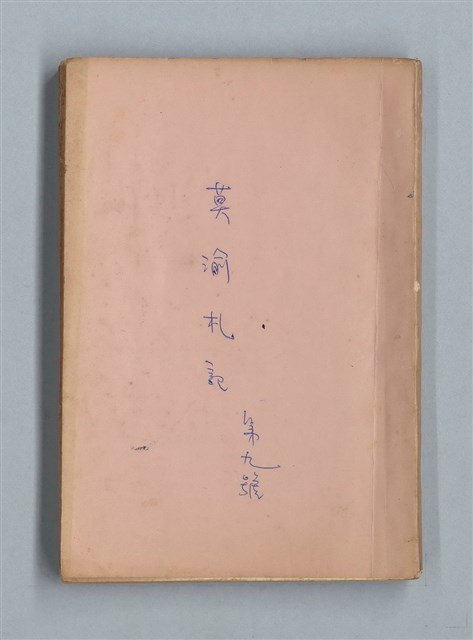 莫渝札記
第九號